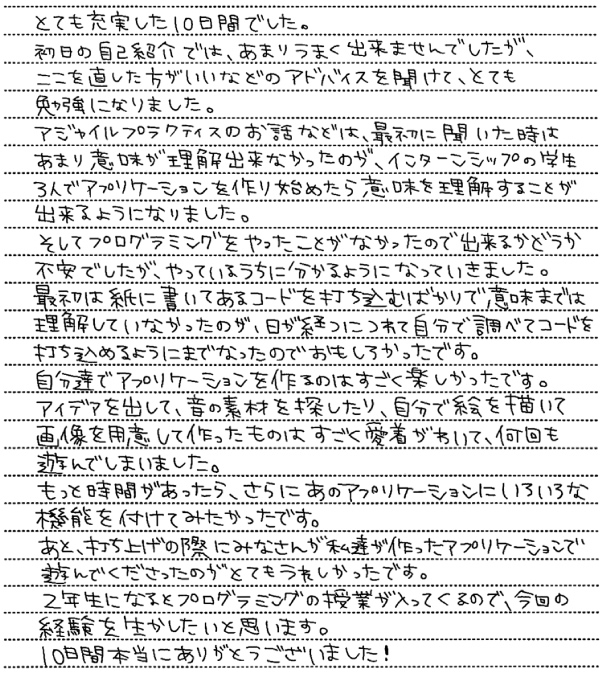 とても充実した10日間でした。
初日の自己紹介では、あまりうまく出来ませんでしたが、
ここを直した方がいいなどのアドバイスを聞けて、とても
勉強になりました。
アジャイルプラクティスのお話などは、最初に聞いた時は
あまり意味が理解出来なかったのが、インターンシップの学生
3人でアプリケーションを作り始めたら意味を理解することが
出来るようになりました。
そしてプログラミングをやったことがなかったので出来るかどうか
不安でしたが、やっているうちに分かるようになっていきました。
最初は紙に書いてあるコードを打ち込むばかりで意味までは
理解していなかったのが、日が経つにつれて自分で調べてコードを
打ち込めるようにまでなったのでおもしろかったです。
自分達でアプリケーションを作るのはすごく楽しかったです。
アイデアを出して、音の素材を探したり、自分で絵を描いて
画像を用意して作ったものはすごく愛着がわいて、何回も
遊んでしまいました。
もっと時間があったら、さらにあのアプリケーションにいろいろな
機能を付けてみたかったです。
あと、打ち上げの際にみなさんが私達が作ったアプリケーションで
遊んでくださったのがとてもうれしかったです。
2年生になるとプログラミングの授業が入ってくるので、今回の
経験を生かしたいと思います。
10日間本当にありがとうございました!